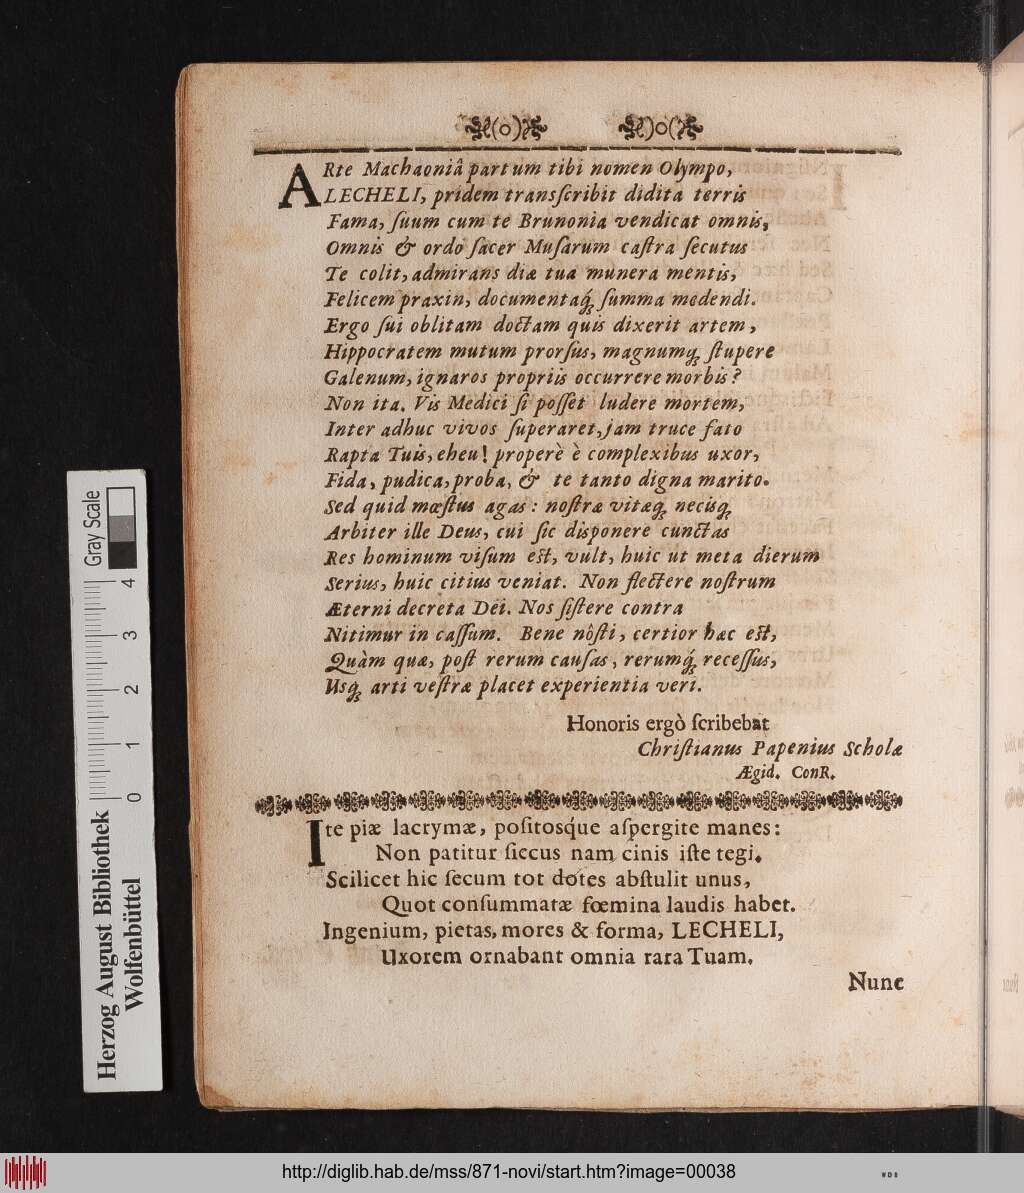 ARte Machaoniâ partum tibi nomen Olympo,
LECHELI, pridem transſcribit didita terris
Fama, ſuum cum te Brunonia vendicat omnis,
Omnis & ordo ſacer Muſarum caſtra ſecutus
Te colit, admirans diæ tua munera mentis,
Felicem praxin, documentaq́; ſumma medendi.
Ergo ſui oblitam doctam quis dixerit artem,
Hippocratem mutum prorſus, magnumq; ſtupere
Galenum, ignaros propriis occurrere morbis?
Non ita. Vis Medici ſi poſſet ludere mortem,
Inter adhuc vivos ſuperaret, jam truce fato
Rapta Tuis, eheu! properè è complexibus uxor,
Fida, pudica, proba, & te tanto digna marito.
Sed quid mœſtus agas: noſtræ vitæq; necisq;
Arbiter ille Deus, cui ſic disponere cunctas
Res hominum viſum eſt, vult, huic ut meta dierum
Serius, huic citius veniat. Non flectere noſtrum
Æterni decreta Dei. Nos ſiſtere contra
Nitimur in caſſum. Bene nôſti, certior hæc eſt,
Quàm quæ, poſt rerum cauſas, rerumq́; receſſus,
Usq; arti veſtræ placet experientia veri.
Honoris ergò ſcribebat
Chriſtianus Papenius Scholæ
Ægid. ConR.
Ite piæ lacrymæ, poſitosq́ue aſpergite manes:
Non patitur ſiccus nam cinis iſte tegi.
Scilicet hic ſecum tot dotes abſtulit unus,
Quot conſummatæ fœmina laudis habet.
Ingenium, pietas, mores & forma, LECHELI,
Uxorem ornabant omnia rara Tuam.
Nunc
Herzog August Bibliothek
Wolfenbüttel
Gray Scale
0 1 2 3 4
http://diglib.hab.de/mss/871-novi/start.htm?image=00038
WDB